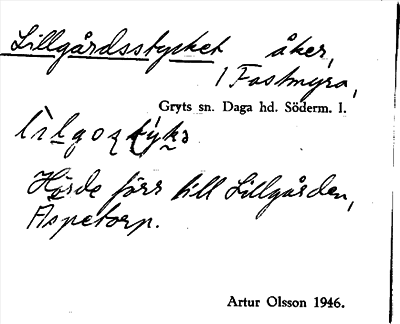 Lillgårdsstycket åker,
i Fastmyra,
Gryts sn. Daga hd. Söderm. l.
Hörde förr till Lillgården,
Aspetorp.
Artur Olsson 1946.